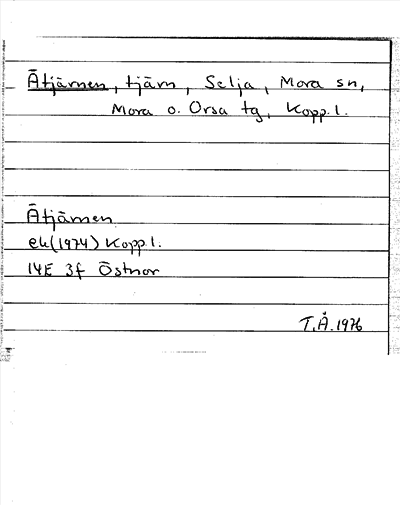 Åtjärnen, tjärn, Selja, Mora sn,
Mora o. Orsa tg, Kopp. l.
Åtjärnen
ek (1974) Kopp. l.
14E 3f Östnor
T.Å. 1976